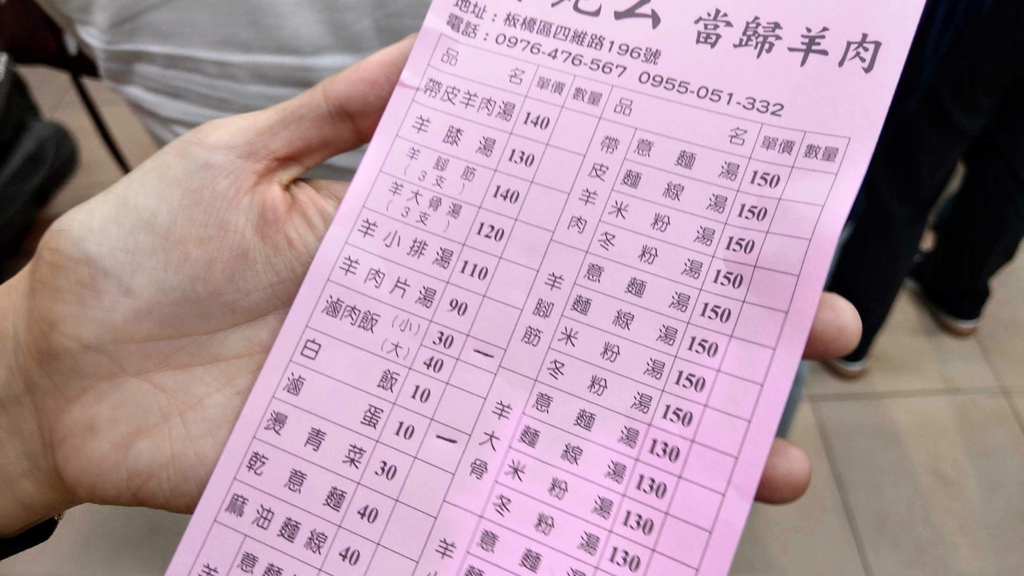 老么 當歸羊肉
地址：板橋區四維路196號
電話：0976-476-567 0955-051-332
品名 單價 數量
帶皮羊肉湯 140
羊膝湯 130
羊腳筋(3支) 140
羊大骨湯(3支) 120
羊小排湯 110
羊肉片湯 90
滷肉飯 (小) 30 一
(大) 40
白飯 10
滷蛋 10 一
燙青菜 30
乾意麵 40
麻油麵線 40
羊 意麵
品名 單價 數量
帶皮羊肉
意麵湯 150
麵線湯 150
米粉湯 150
冬粉湯 150
羊腳筋
意麵湯 150
麵線湯 150
米粉湯 150
冬粉湯 150
羊大骨
意麵湯 130
麵線湯 130
米粉湯 130
冬粉湯 130
羊
意麵湯